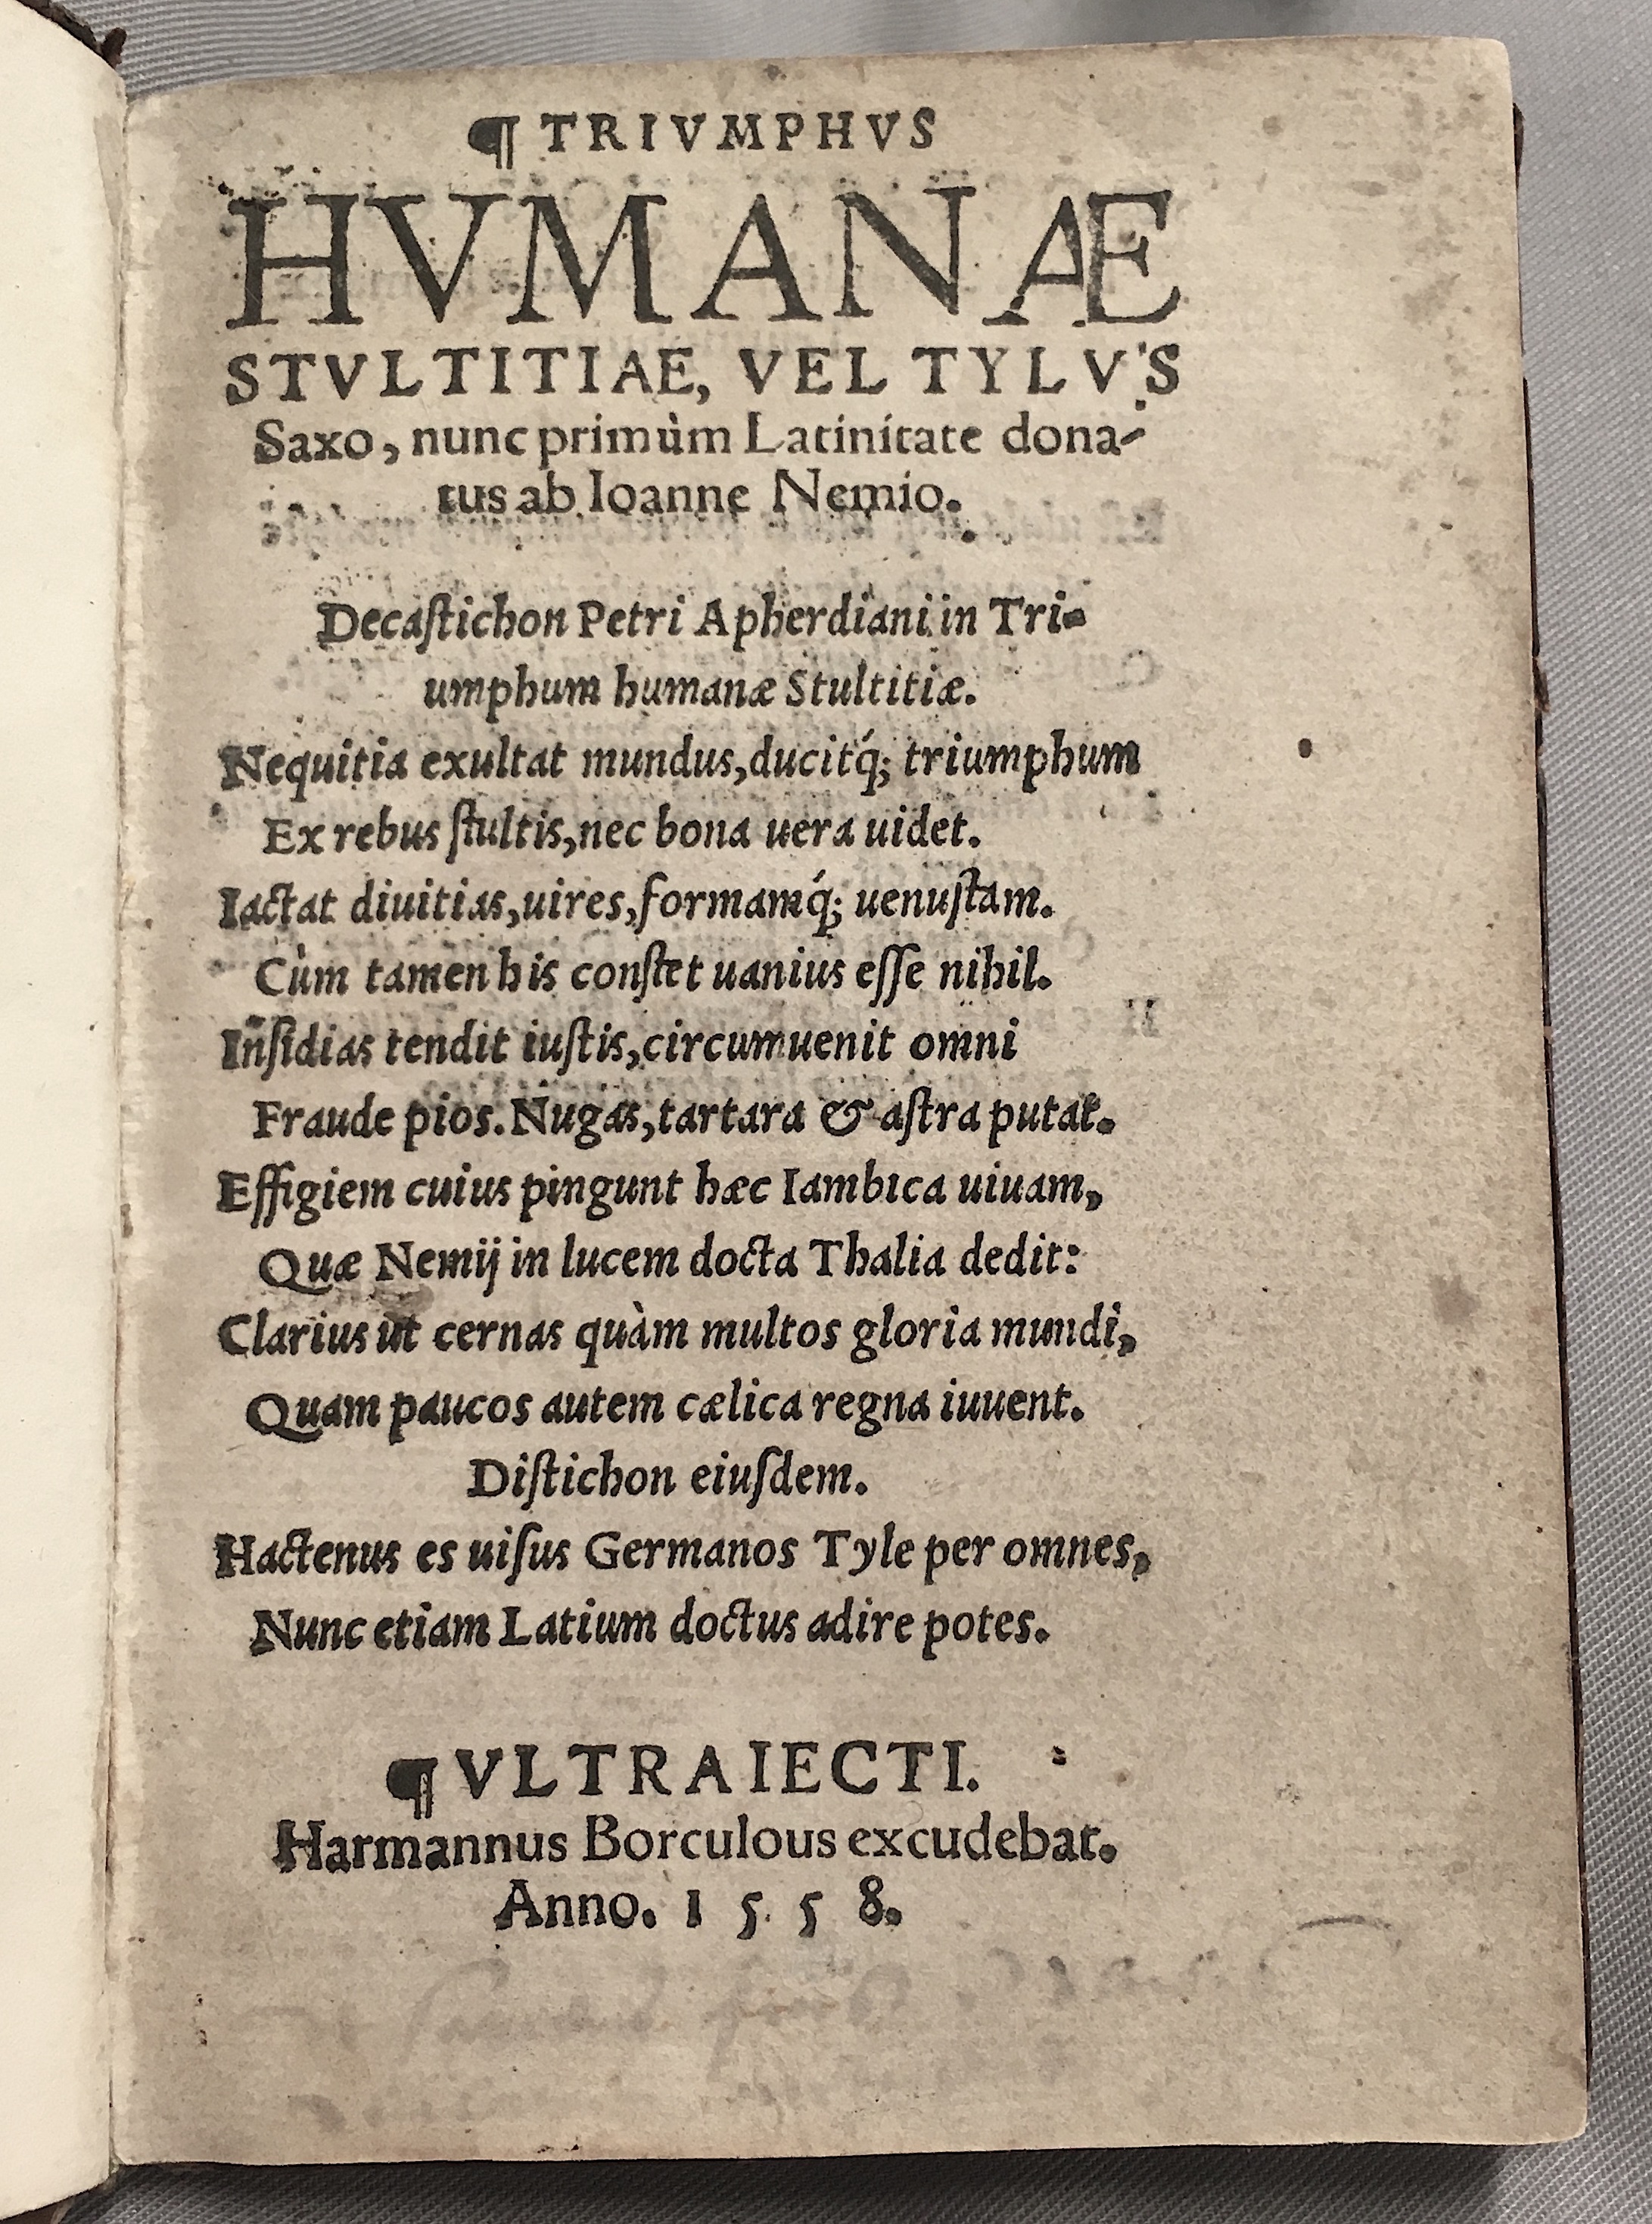 ¶ TRIVMPHVS
HVMANÆ
STVLTITIAE, VEL TYLVS
Saxo, nunc primùm Latinitate dona-
tus ab Ioanne Nemio.
Decaſtichon Petri Apherdiani in Tri-
umphum humanæ Stultitiæ.
Nequitia exultat mundus, ducitq́; triumphum
Ex rebus ſtultis, nec bona uera uidet.
Iactat diuitias, uires, formamq́; uenuſtam.
Cùm tamen his conſtet uanius eſſe nihil.
Inſidias tendit iuſtis, circumuenit omni
Fraude pios. Nugas, tartara & aſtra putat.
Effigiem cuius pingunt hæc Iambica uiuam,
Quæ Nemij in lucem docta Thalia dedit:
Clarius ut cernas quàm multos gloria mundi,
Quam paucos autem cælica regna iuuent.
Diſtichon eiuſdem.
Hactenus es uiſus Germanos Tyle per omnes,
Nunc etiam Latium doctus adire potes.
¶ VLTRAIECTI.
Harmannus Borculous excudebat.
Anno. 1 5 5 8.